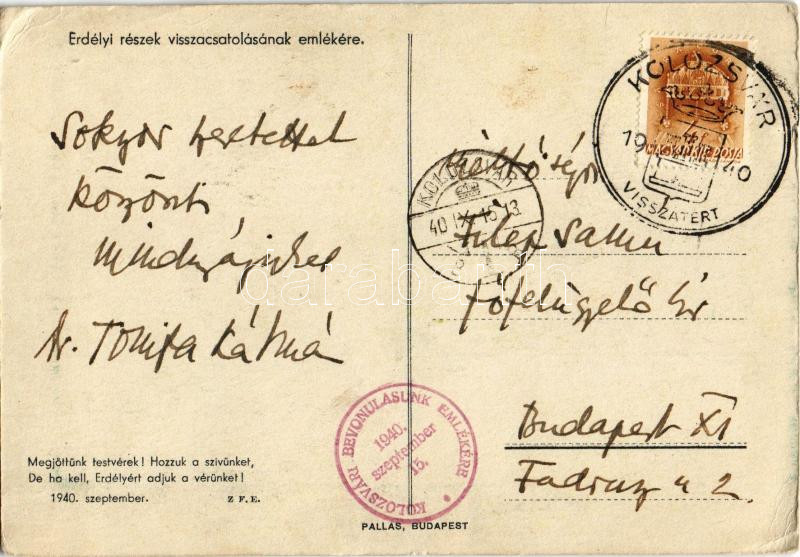 Erdélyi részek visszacsatolásának emlékére.
KOLOZSVÁR
19 40
VISSZATÉRT
MAGYAR KIR. POSTA
KOLOZSVÁR
40 IX 16 13
Sokszor szeretettel
köszönti
mindnyájukat
Dr. Tompa Kálmán
Filep Samu
főfelügyelő úr
Budapest XI
Fadrusz u 2.
KOLOZSVÁRI BEVONULÁSUNK EMLÉKÉRE
1940.
szeptember
15.
Megjöttünk testvérek! Hozzuk a szivünket,
De ha kell, Erdélyért adjuk a vérünket!
1940. szeptember. Z F. E.
PALLAS, BUDAPEST
darabanth